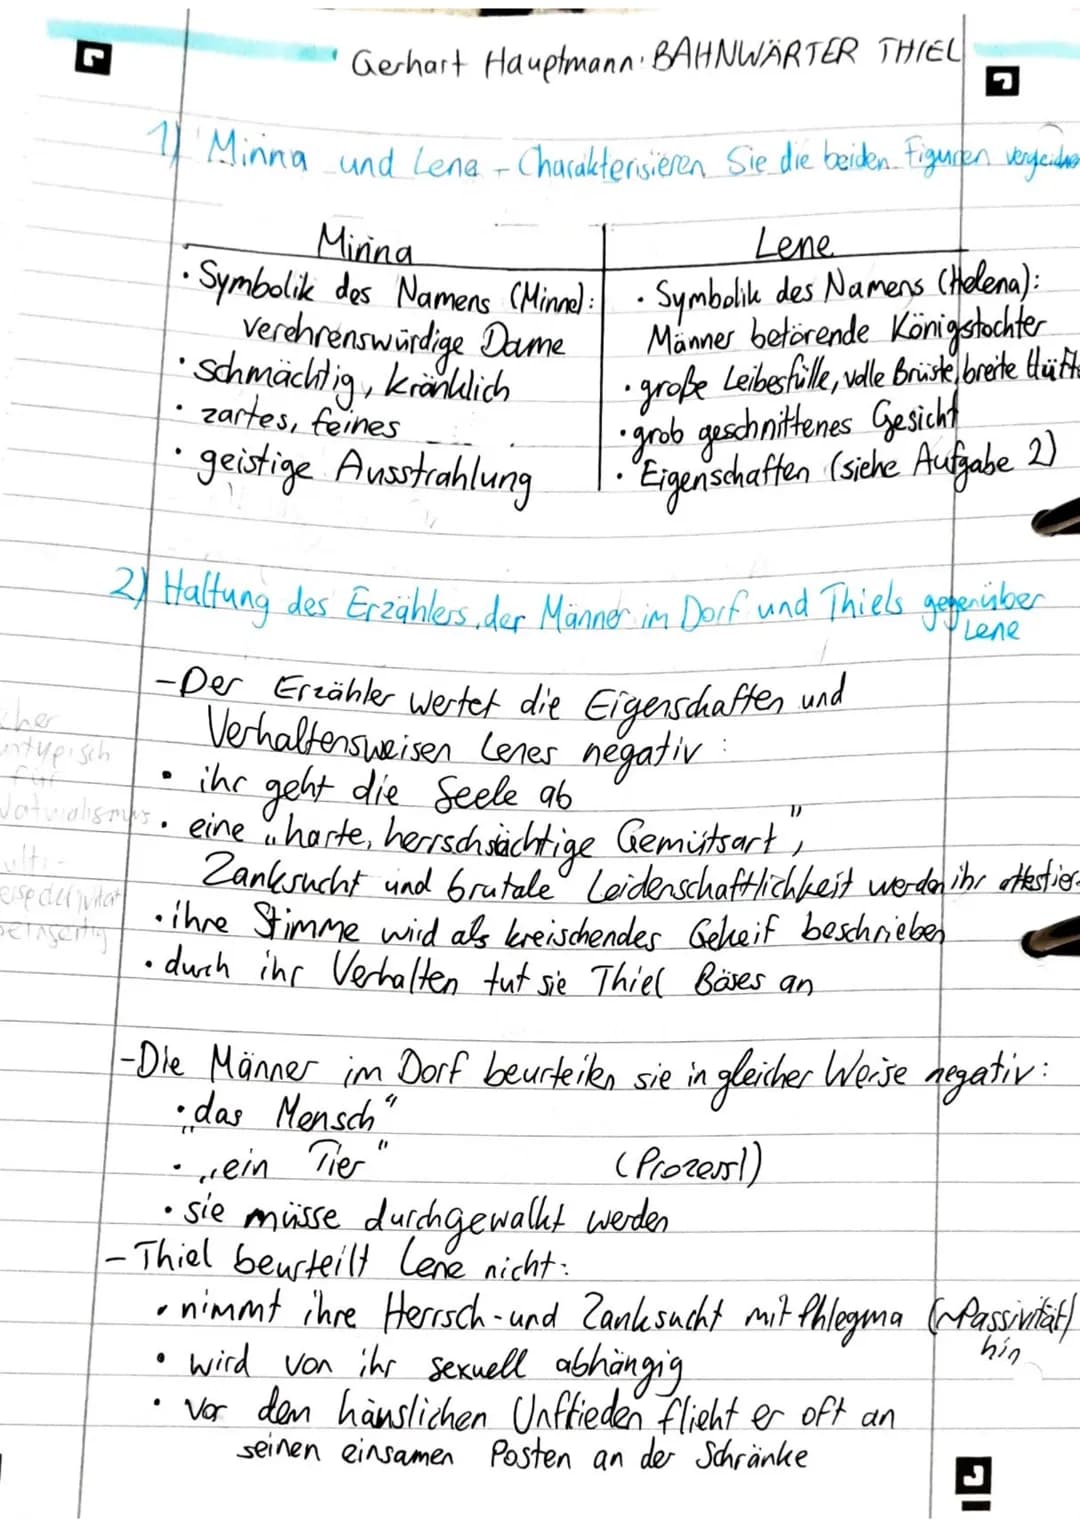 Gerhart Hauptmann: BAHNWÄRTER THIEL
1) Minna und Lene - Charakterisieren Sie die beiden Figuren
Minna
Lene
• Symbolik des Namens (Minne):
verehrenswürdige Dame
• schmächtig, kränklich
• zartes, feines
• geistige Ausstrahlung
• Symbolik des Namens (Helena):
Männer betörende Königstochter
• große Leibesfülle, volle Brüste, breite Hüfte
• grob geschnittenes Gesicht
• Eigenschaften (siehe Aufgabe 2)
2) Haltung des Erzählers, der Männer im Dorf und Thiels gegenüber
Lene
- Der Erzähler wertet die Eigenschaften und
Verhaltensweisen Lenes negativ:
• ihr geht die Seele ab
• eine „harte, herrschsüchtige Gemütsart",
Zanksucht und brutale Leidenschaftlichkeit werden ihr attestier
• ihre Stimme wird als kreischendes Gekeif beschrieben
• durch ihr Verhalten tut sie Thiel Böses an
untypisch
für
Naturalismus
- Die Männer im Dorf beurteilen sie in gleicher Weise negativ:
• „das Mensch"
• „ein Tier" (Prozess!)
• sie müsse durchgewalkt werden
- Thiel beurteilt Lene nicht:
• nimmt ihre Herrsch- und Zanksucht mit Phlegma (~Passivität)
hin
• wird von ihr sexuell abhängig
• vor dem häuslichen Unfrieden flieht er oft an
seinen einsamen Posten an der Schränke